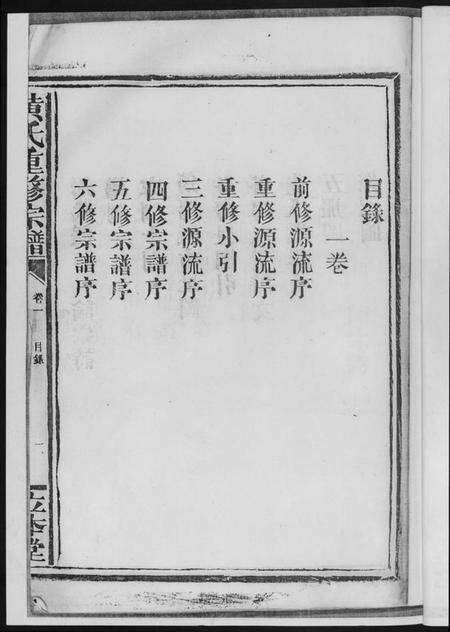 目錄
一卷
前修源流序
重修源流序
重修小引
三修源流序
四修宗譜序
五修宗譜序
六修宗譜序
黃氏重修宗譜
卷一
目錄
一